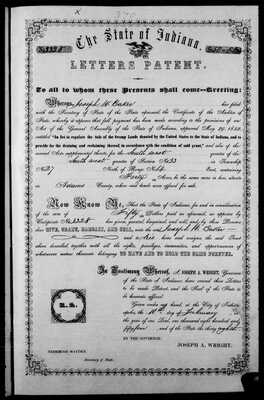 The State of Indiana,
LETTERS PATENT.
To all to whom these Presents shall come—Greeting:
Whereas, Joseph W Baxter has filed
with the Secretary of State of the State aforesaid the Certificate of the Auditor of
State, whereby it appears that full payment has been made according to the provisions of an
Act of the General Assembly of the State of Indiana, approved May 29, 1852,
entitled "An Act to regulate the sale of the Swamp Lands donated by the United States to the State of Indiana, and to
provide for the draining and reclaiming thereof in accordance with the condition of said grant," and also of the
several Acts supplemental thereto, for the South west
quarter of Section No 33 in Township
No 37 North of Range No East, containing
Forty Acres, be the same more or less, situate
in County, where said lands were offered for sale.
Now Know Ye, That the State of Indiana, for and in consideration
of the sum of Fifty Dollars paid as aforesaid, as appears by
Certificate No has given, granted, bargained and sold, and by these Presents
does GIVE, GRANT, BARGAIN, AND SELL, unto the said Joseph W Baxter
and to his heirs and assigns the said Tract
above described together with all the rights, privileges, immunities, and appurtenances of
whatsoever nature thereunto belonging TO HAVE AND TO HOLD THE SAME FOREVER.
In Testimony Whereof, I, JOSEPH A. WRIGHT, Governor
of the State of Indiana, have caused these Letters to
be made Patent, and the Seal of the State to
be hereunto affixed.
L. S.
Given under my hand, at the City of Indian-
apolis, the day of January in
the year of our Lord, one thousand eight hundred and
fifty four and of the State the thirty eighth
BY THE GOVERNOR:
JOSEPH A. WRIGHT.
Secretary of State.